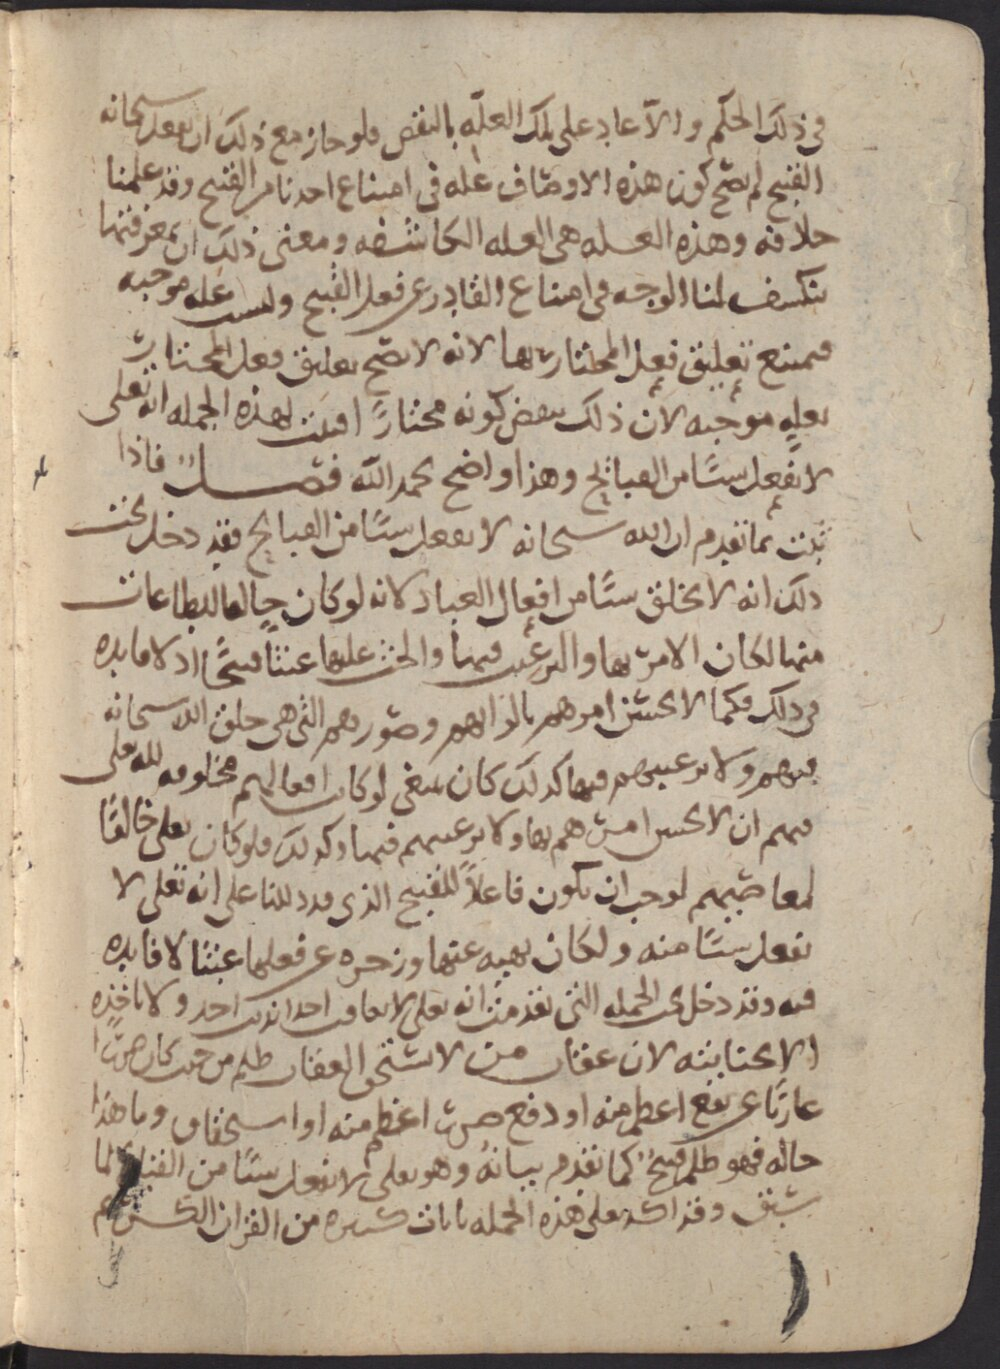 في ذلك الحكم والا عاد على تلك العلّه بالنقض فلو جاز مع ذلك ان يفعل سبحانه
القبيح لم يصّح كون هذه الاوصاف علّه في امتناع احدنا من القبيح وقد علمنا
خلافه وهذه العله هي العله الكاشفه ومعنى ذلك ان بمعرفتها
ينكشف لنا الوجه في امتناع القادر عن فعل القبيح وليست عله موجبه
فيمتنع تعليق فعل المختار بها لانه لا يصّح تعليق فعل المختار
بعلهٍ موجبه لان ذلك ينقض كونه مختارًا فثبت بهذه الجمله انه تعلى
لا يفعل شيئًا من القبائح وهذا واضح بحمد الله فصل فاذا
ثبت بما تقدم ان الله سبحانه لا يفعل شيئًا من القبائح فقد دخل تحت
ذلك انه لا يخلق شيئًا من افعال العباد لانه لو كان خالقا للطاعات
منها لكان الامر بها والترغيب فيها والحث عليها عبثًا قبيحًا اذ لا فايده
في ذلك فكما لا يحسن امرهم بالوانهم وصورهم التي هي خلق الله سبحانه
فيهم ولا ترغيبهم فيها كذلك كان ينبغي لو كانت افعالهم مخلوقه لله تعلى
فيهم ان لا يحسن امرهم بها ولا ترغيبهم فيها وكذلك فلو كان تعلى خالقًا
لمعاصيهم لوجب ان يكون فاعلاً للقبيح الذي قد دللنا على انه تعلى لا
يفعل شيئًا منه ولكان نهيه عنها وزجره عن فعلها عبثًا لا فايده
فيه وقد دخل تحت الجمله التي تقدمت انه تعلى لا يعاقب احدا بذنب احد ولا ياخذه
الا بجنايته لان عقاب من لا يستحق العقاب ظلم من حيث كان ضررًا
عاريًا عن نفع اعظم منه او دفع ضرر اعظم منه او استحقاق وما هذا
حاله فهو ظلم قبيحٌ كما تقدم بيانه وهو تعلى لا يفعل شيئًا من القبائح لما
سبق وقد اكد تعلى هذه الجمله بايات كثيره من القران الكريم